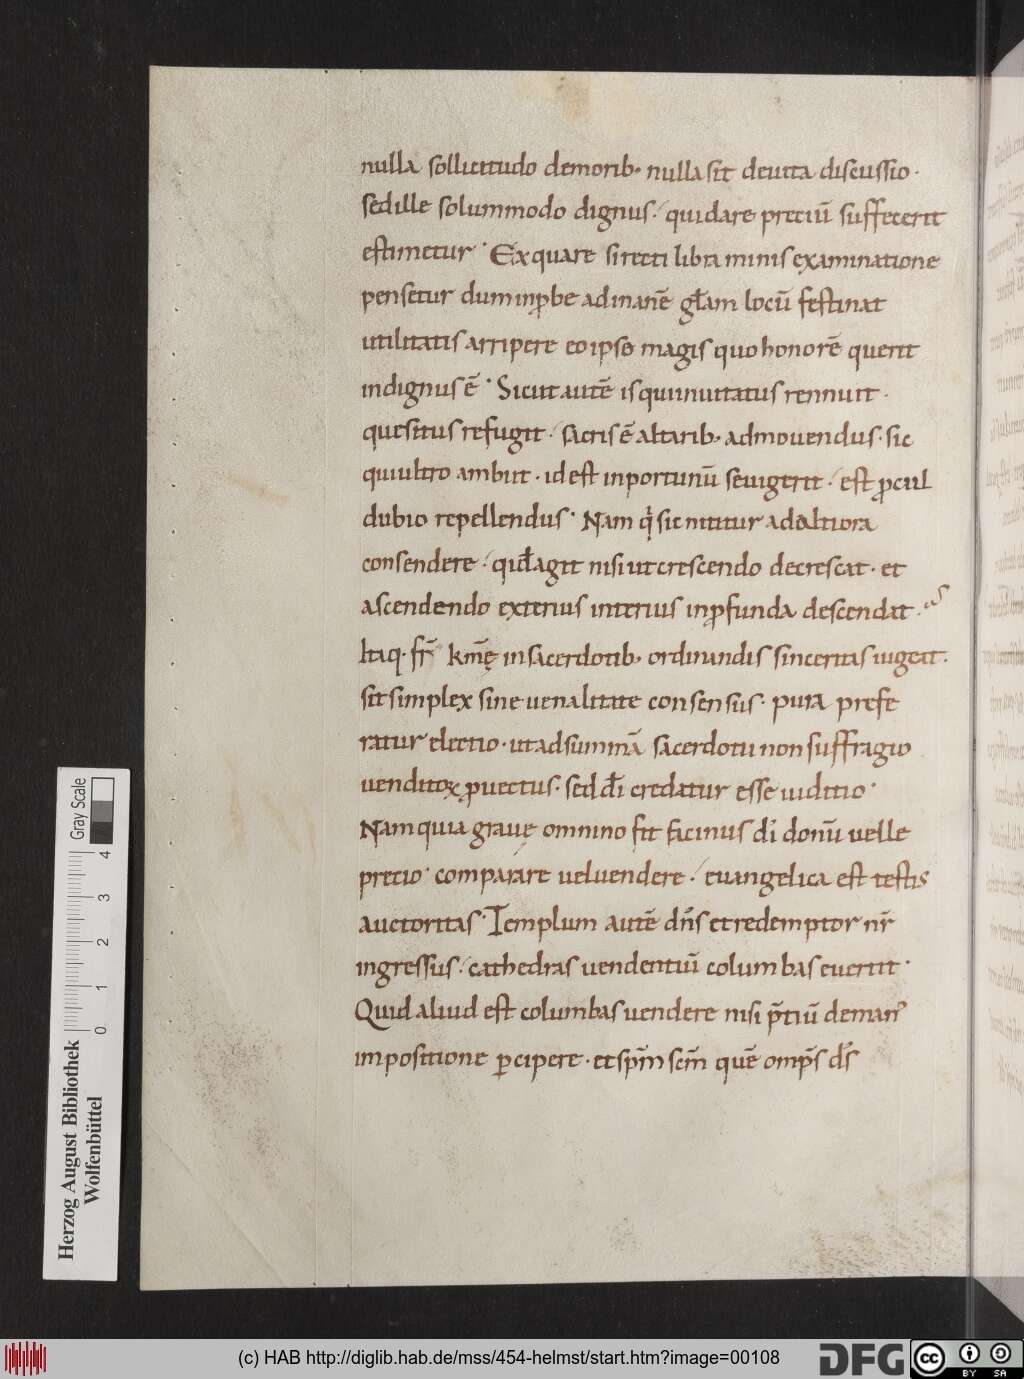 nulla sollicitudo demorib; nulla sit deuita discussio·
sed ille solummodo dignus· qui dare preciū suffecerit
estimetur· Ex quare si recti libra minis examinatione
pensetur dum inꝓbe ad inanē gl̄am locū festinat
utilitatis arripere eo ipso magis quo honorē querit
indignus ē· Sicut autē is qui inuitatus rennuit·
quesitus refugit· sacris ē altarib; admouendus· sic
qui ultro ambit· id est inportunū se uigerit· est ꝓcul
dubio repellendus· Nam q̇ sic nititur ad altiora
consendere· quid agit nisi ut crescendo decrescat· et
ascendendo exterius interius in ꝓfunda descendat·
Itaq· fr̄ km̄ę in sacerdotib; ordinandis sinceritas uigeat·
sit simplex sine uenalitate consensus· pura prefe
ratur electio· ut ad summā sacerdotii non suffragio
uenditoꝝ ꝓuectus· sed dī credatur esse iuditio·
Nam quia grauę omnino fit facinus dī donū uelle
precio· comparare uel uendere· euangelica est testis
auctoritas· Templum autē dn̄s et redemptor nr̄
ingressus· cathedras uendentiū columbas euertit·
Quid aliud est columbas uendere nisi p̄tiū de man᷒
impositione ꝑcipere· et sp̄m sc̄m quē omp̄s d̄s
Herzog August Bibliothek
Wolfenbüttel
0 1 2 3 4
Gray Scale
(c) HAB http://diglib.hab.de/mss/454-helmst/start.htm?image=00108
DFG
cc BY SA